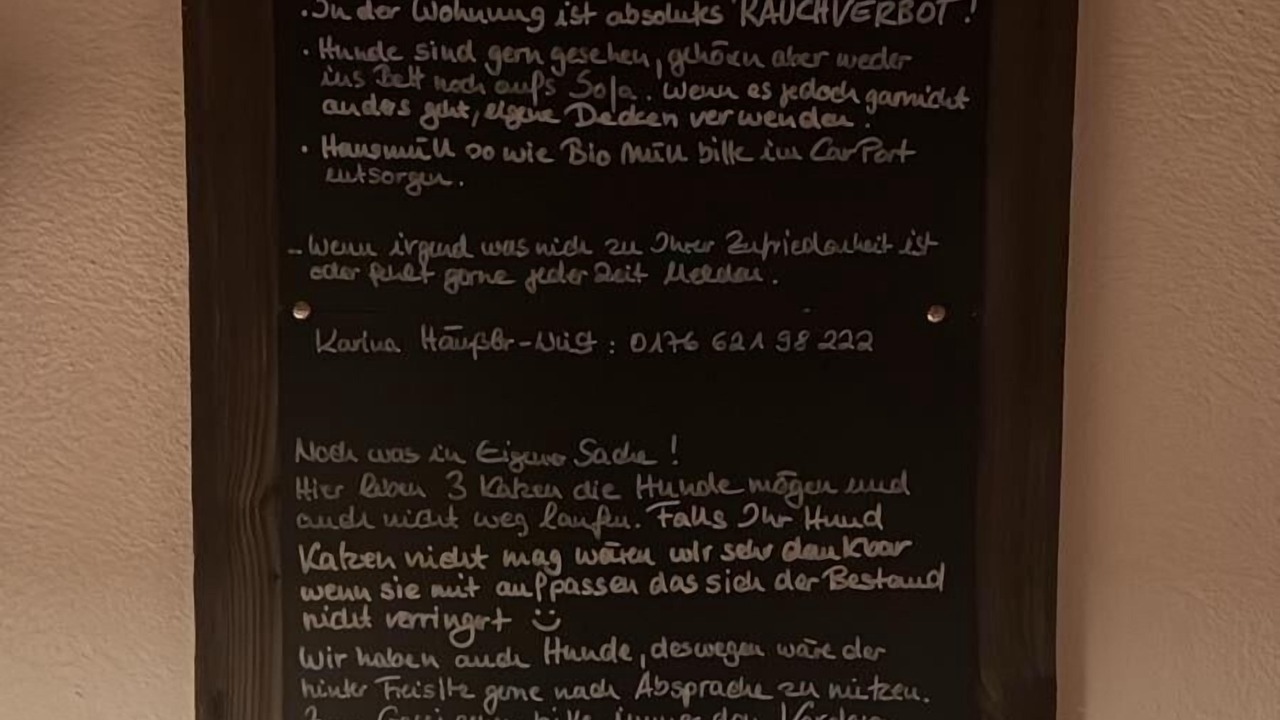 · In der Wohnung ist absolutes RAUCHVERBOT!
· Hunde sind gern gesehen, gehören aber weder
ins Bett noch aufs Sofa. Wenn es jedoch garnicht
anders geht, eigene Decken verwenden.
· Hausmüll so wie Bio Müll bitte im CarPort
entsorgen.
- Wenn irgend was nich zu Ihrer Zufriedenheit ist
oder fehlt gerne jeder Zeit Melden.
Karina : 0176 621 98 222
Noch was in Eigener Sache!
Hier leben 3 Katzen die Hunde mögen und
auch nicht weg laufen. Falls Ihr Hund
Katzen nicht mag wären wir sehr dankbar
wenn sie mit aufpassen das sich der Bestand
nicht verringert :)
Wir haben auch Hunde, deswegen wäre der
hinter Freisitz gerne nach Absprache zu nutzen.
bitte immer den